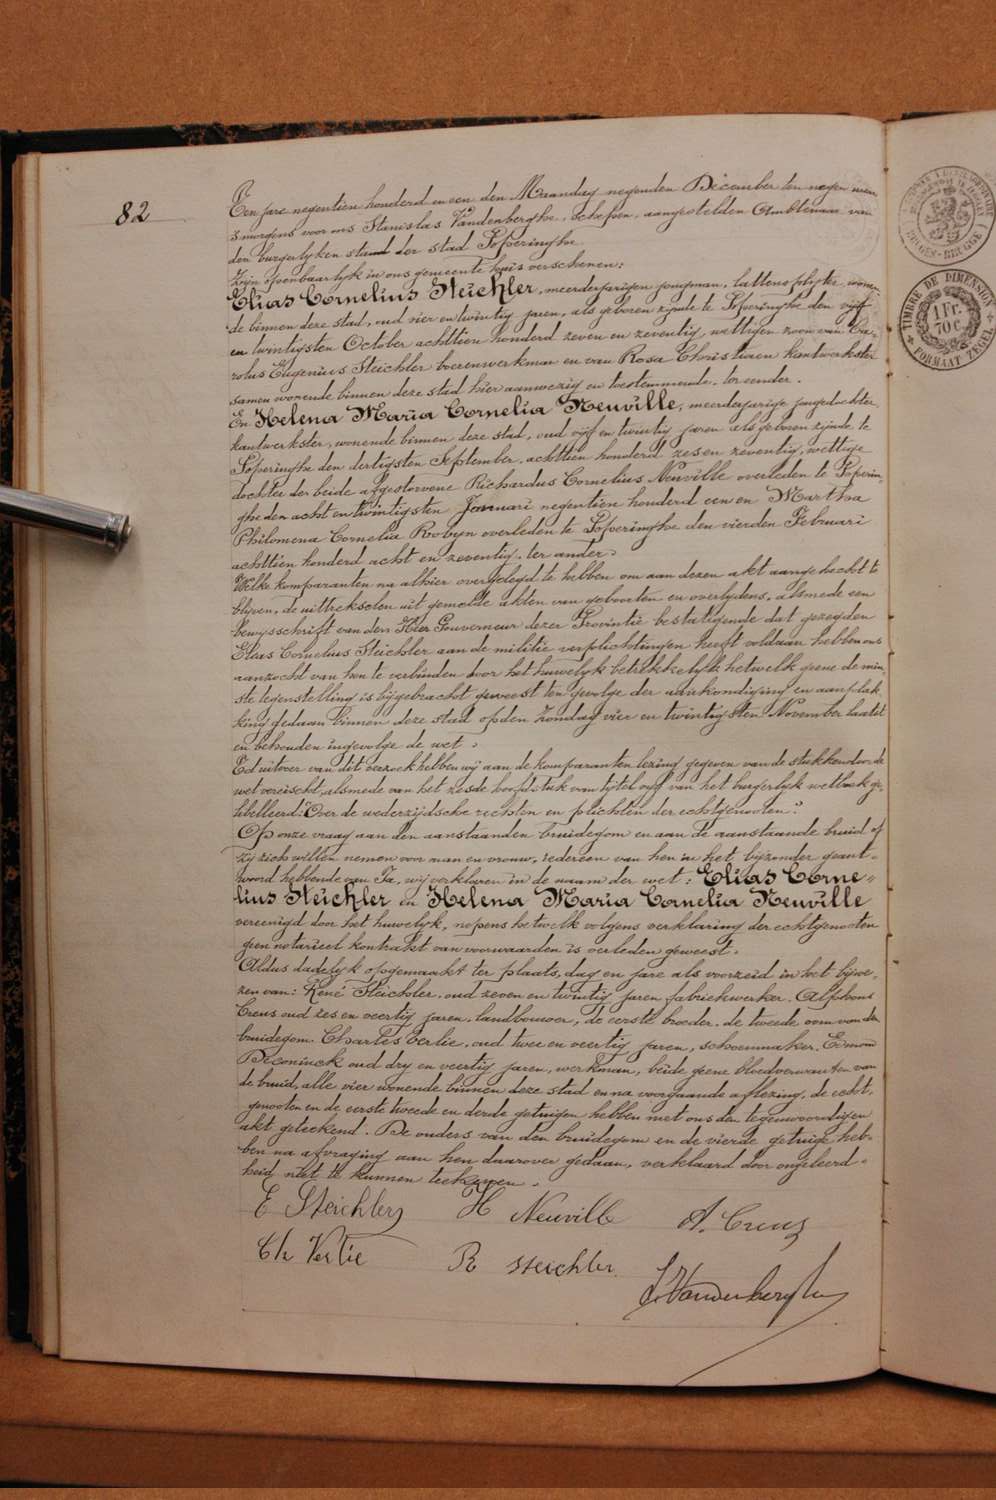 82
Ten jare negentien honderd en een den Maandag negenden December ten negen uren
smorgens voor ons Stanislas Vandenberghe, schepen, aangestelden Ambtenaar van
den burgerlyken stand der stad Poperinghe
Zyn openbaarlyk in ons gemeente huis verschenen:
Elias Cornelius Steichler, meerderjarigen jongman, lattensplyter, wonen-
de binnen deze stad, oud vier en twintig jaren, als geboren zynde te Poperinghe den vyf
en twintigsten October achttien honderd zeven en zeventig, wettigen zoon van Ca-
rolus Eugenius Steichler boerenwerkman en van Rosa Christiaen kantwerkster
samen wonende binnen deze stad hier aanwezig en toestemmende. ter eender.
En Helena Maria Cornelia Neuville, meerderjarige jongedochter,
kantwerkster, wonende binnen deze stad, oud vyf en twintig jaren als geboren zynde te
Poperinghe den dertigsten September achttien honderd zes en zeventig, wettige
dochter der beide afgestorvene Richardus Cornelius Neuville overleden te Poperin-
ghe den acht en twintigsten Januari negentien honderd een en Martha
Philomena Cornelia Robyn overleden te Poperinghe den vierden Februari
achttien honderd acht en zeventig. ter ander.
Welke komparanten na alhier overgelegd te hebben om aan dezen akt aangehecht te
blyven, de uittrekselen uit gemelde akten van geboorten en overlydens, alsmede een
bewysschrift van den Heer Gouverneur dezer Provintie bestatigende dat gezegden
Elias Cornelius Steichler aan de militie verplichtingen heeft voldaan hebben ons
aanzocht van hen te verbinden door het huwelyk betrekkelyk hetwelk geene de min-
ste tegenstelling is bygebracht geweest ten gevolge der aankondiging en aanplak-
king gedaan binnen deze stad op den Zondag vier en twintigsten November laatst
en behouden ingevolge de wet.
Tot uitvoer van dit verzoek hebben wy aan de komparanten lezing gegeven van de stukken door de
wet vereischt, alsmede van het zesde hoofdstuk van tytel vyf van het burgerlyk wetboek ge-
libelleerd: "Over de wederzydsche rechten en plichten der echtgenooten."
Op onze vraag aan den aanstaanden bruidegom en aan de aanstaande bruid of
zy zich willen nemen voor man en vrouw, iedereen van hen in het byzonder geant-
woord hebbende van Ja, wy verklaren in de naam der wet: Elias Corne-
lius Steichler en Helena Maria Cornelia Neuville
vereenigd door het huwelyk, nopens hetwelk volgens verklaring der echtgenooten
geen notarieel kontrakt van voorwaarden is verleden geweest.
Aldus dadelyk opgemaakt ter plaats, dag en jare als voorzeid in het bywe-
zen van: René Steichler, oud zeven en twintig jaren fabriekwerker. Alphons
Creus oud zes en veertig jaren, landbouwer, de eerste broeder, de tweede oom van den
bruidegom. Charles Verlie, oud twee en veertig jaren, schoenmaker. Edmond
Deconinck oud dry en veertig jaren, werkman, beide geene bloedverwanten van
de bruid, alle vier wonende binnen deze stad en na voorgaande aflezing, de echt-
genooten en de eerste tweede en derde getuigen hebben met ons den tegenwoordigen
akt geteekend. De ouders van den bruidegom en de vierde getuige heb-
ben na afvraging aan hen daarover gedaan, verklaard door ongeleerd-
heid niet te kunnen teekenen.
E Steichler H Neuville A. Creus
Ch Verlie R Steichler
S. Vandenberghe
TIMBRE DE DIMENSION
1 Fr.
70 c.
FORMAAT ZEGEL